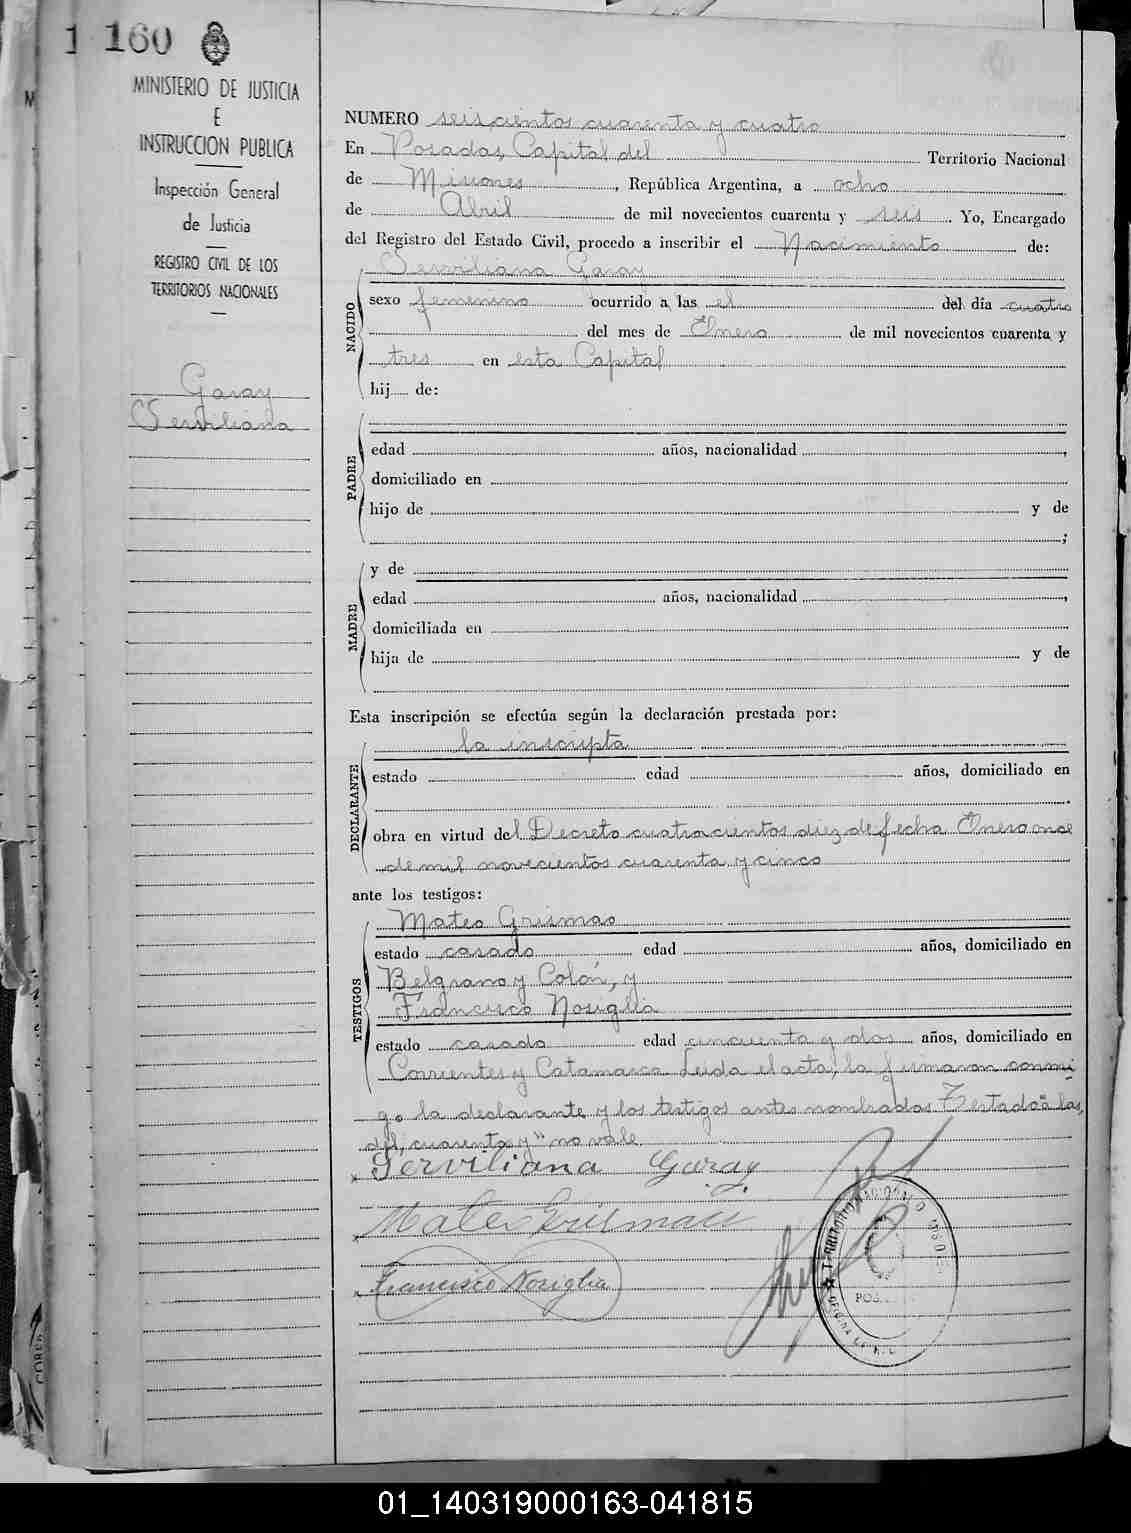 1 160
MINISTERIO DE JUSTICIA
E
INSTRUCCION PUBLICA
Inspección General
de Justicia
REGISTRO CIVIL DE LOS
TERRITORIOS NACIONALES
Garay
Serviliana
NUMERO seiscientos cuarenta y cuatro
En Posadas, Capital del Territorio Nacional
de Misiones, República Argentina, a ocho
de Abril de mil novecientos cuarenta y seis. Yo, Encargado
del Registro del Estado Civil, procedo a inscribir el Nacimiento de:
Serviliana Garay
NACIDO
sexo femenino ocurrido a las el del día cuatro
del mes de Enero de mil novecientos cuarenta y
tres en esta Capital
hij de:
PADRE
edad años, nacionalidad ,
domiciliado en
hijo de y de
;
MADRE
y de
edad años, nacionalidad ,
domiciliada en
hija de y de
Esta inscripción se efectúa según la declaración prestada por:
la inscripta
DECLARANTE
estado edad años, domiciliado en
.
obra en virtud del Decreto cuatrocientos diez de fecha Enero once
de mil novecientos cuarenta y cinco
ante los testigos:
TESTIGOS
Mateo Grismao
estado casado edad años, domiciliado en
Belgrano y Colón, y
Francisco Nosiglia
estado casado edad cincuenta y dos años, domiciliado en
Corrientes y Catamarca Leida el acta, la firmaron conmi-
go la declarante y los testigos antes nombrados Testado "a las,
del, cuarenta y" no vale
Serviliana Garay
Mateo
Francisco Nosiglia
TERRITORIO NACIONAL
OFICINA
01_140319000163-041815